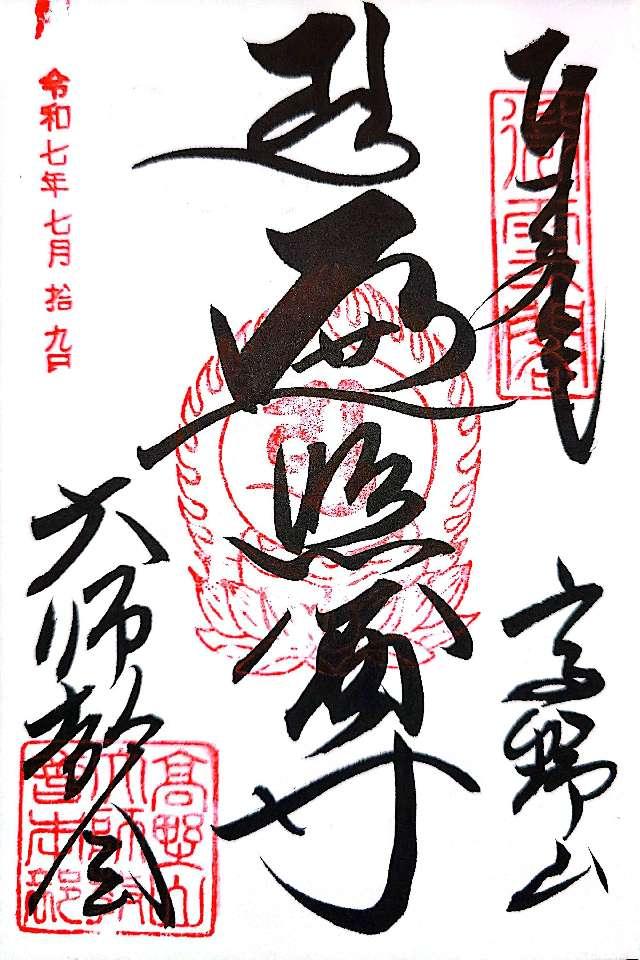 奉拝
高野山
遍照尊
大師教会
令和七年七月拾九日
高野山
大師教
會本部